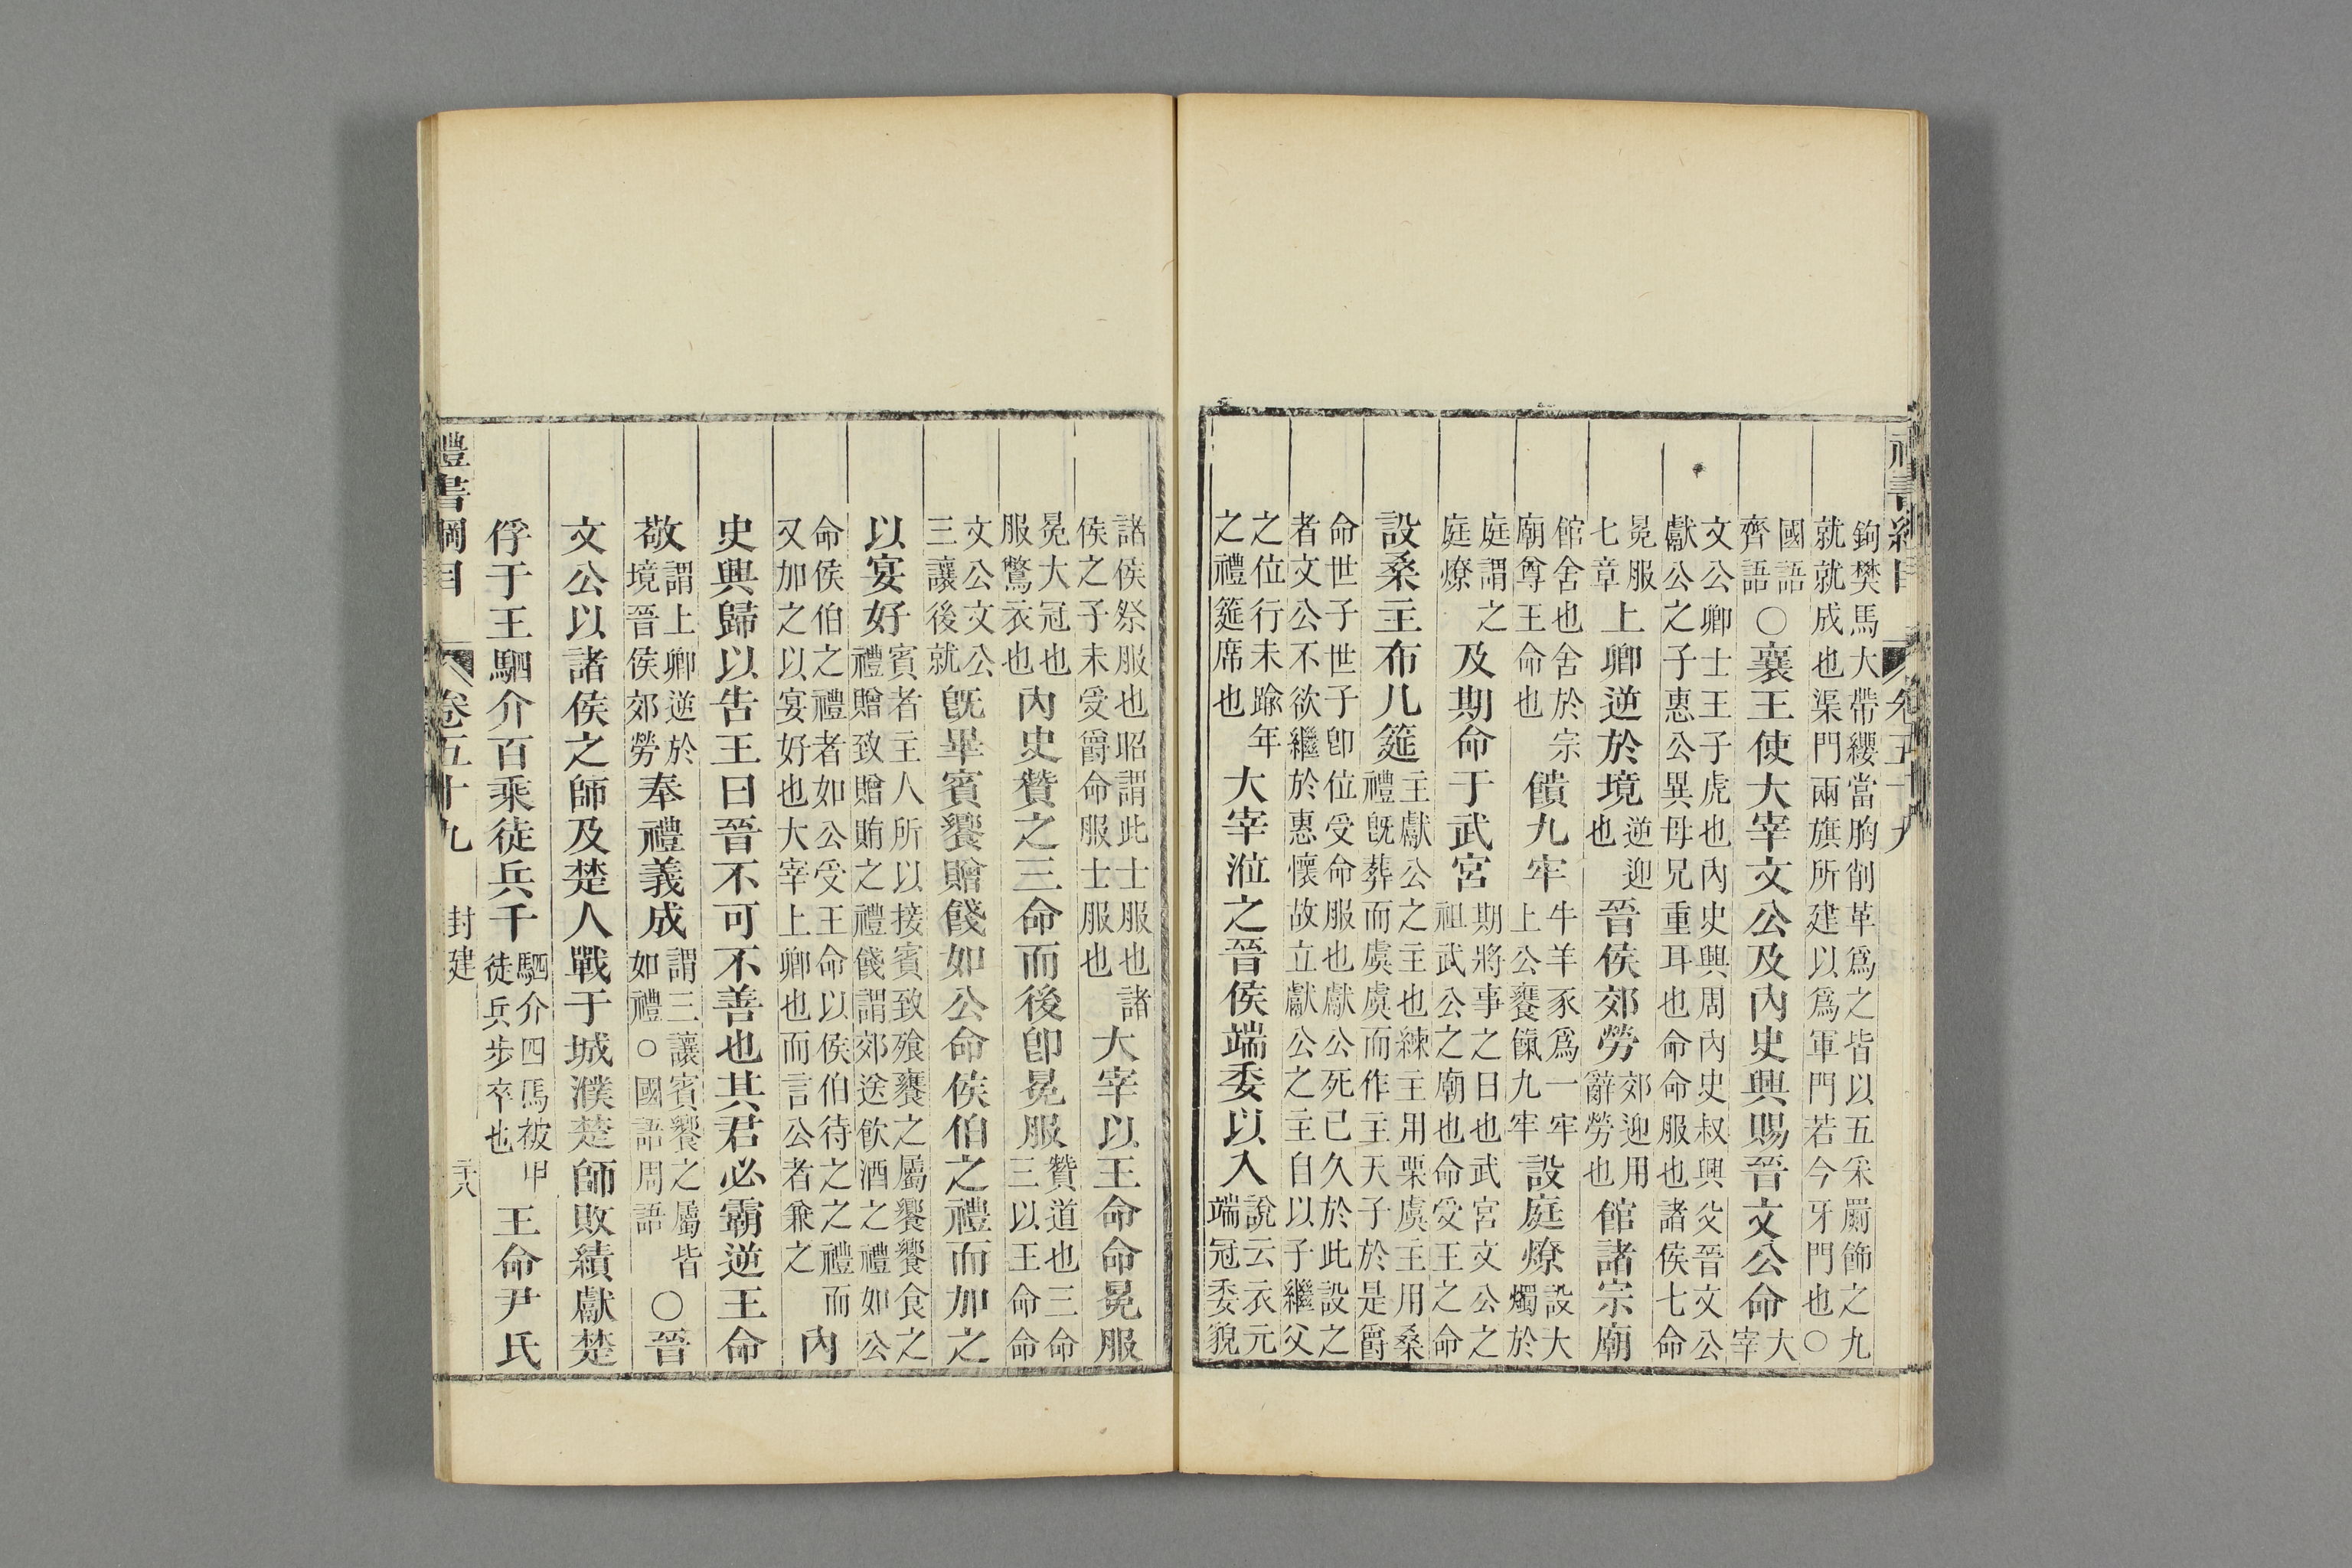 禮書綱目 卷五十九
鉤樊馬大帶纓當胸削革爲之皆以五采罽飾之九
就就成也渠門兩旗所建以爲軍門若今牙門也○
國語齊語○襄王使大宰文公及內史興賜晉文公命大宰
文公卿士王子虎也內史興周內史叔興父晉文公
獻公之子惠公異母兄重耳也命命服也諸侯七命
冕服七章上卿逆於境逆迎也晉侯郊勞郊迎用辭勞也館諸宗廟
館舍也舍於宗廟尊王命也饋九牢牛羊豕爲一牢上公饔餼九牢設庭燎設大燭於
庭謂之庭燎及期命于武宮期將事之日也武宮文公之祖武公之廟也命受王之命
設桑主布几筵主獻公之主也練主用栗虞主用桑禮旣葬而虞虞而作主天子於是爵
命世子世子卽位受命服也獻公死已久於此設之
者文公不欲繼於惠懷故立獻公之主自以子繼父
之位行未踰年之禮筵席也大宰涖之晉侯端委以入說云衣元端冠委貌
諸侯祭服也昭謂此士服也諸侯之子未受爵命服士服也大宰以王命命冕服
冕大冠也服鷩衣也內史贊之三命而後卽冕服贊道也三命三以王命命
文公文公三讓後就旣畢賓饗贈餞如公命侯伯之禮而加之
以宴好賓者主人所以接賓致飱饔之屬饗饗食之禮贈致贈賄之禮餞謂郊送飮酒之禮如公
命侯伯之禮者如公受王命以侯伯待之之禮而又加之以宴好也大宰上卿也而言公者兼之內
史興歸以告王曰晉不可不善也其君必霸逆王命
敬謂上卿逆於境晉侯郊勞奉禮義成謂三讓賓饗之屬皆如禮○國語周語○晉
文公以諸侯之師及楚人戰于城濮楚師敗績獻楚
俘于王駟介百乘徒兵千駟介四馬被甲徒兵步卒也王命尹氏
禮書綱目 卷五十九 封建